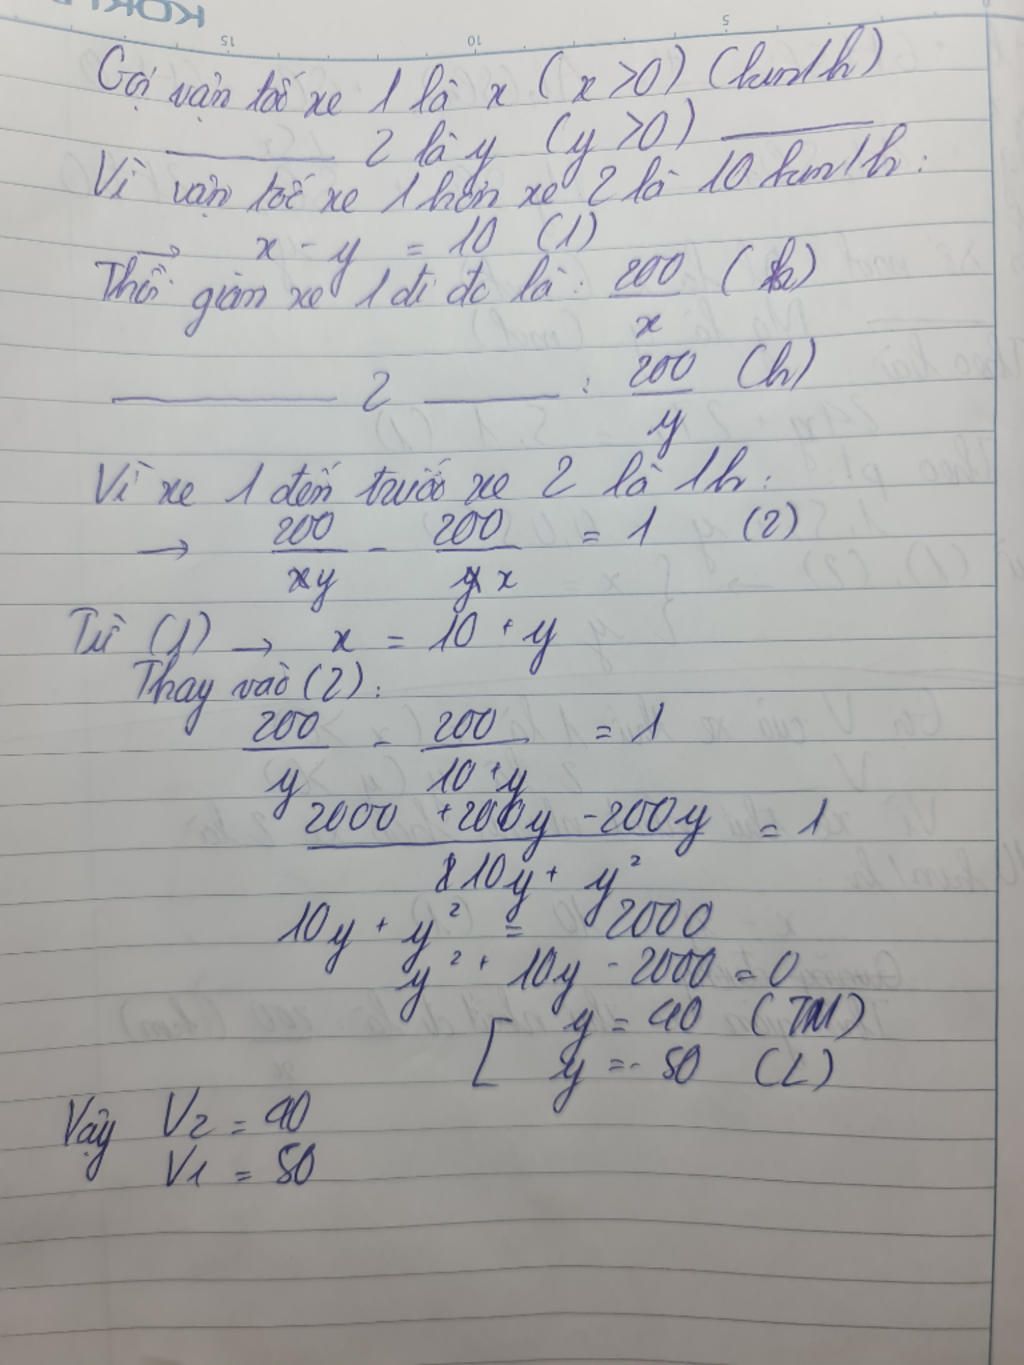 15 10 5
Gọi vận tốc xe 1 là x (x >0) (km/h)
2 là y (y >0)
Vì vận tốc xe 1 hơn xe 2 là 10 km/h :
→ x - y = 10 (1)
Thời gian xe 1 đi đc là : 200/x (h)
2 : 200/y (h)
Vì xe 1 đến trước xe 2 là 1h :
→ 200/y - 200/x = 1 (2)
Từ (1) → x = 10 + y
Thay vào (2) :
200/y - 200/(10 + y) = 1
(2000 + 200y - 200y)/(10y + y²) = 1
10y + y² = 2000
y² + 10y - 2000 = 0
[ y = 40 (TM)
y = - 50 (L)
Vậy V2 = 40
V1 = 50